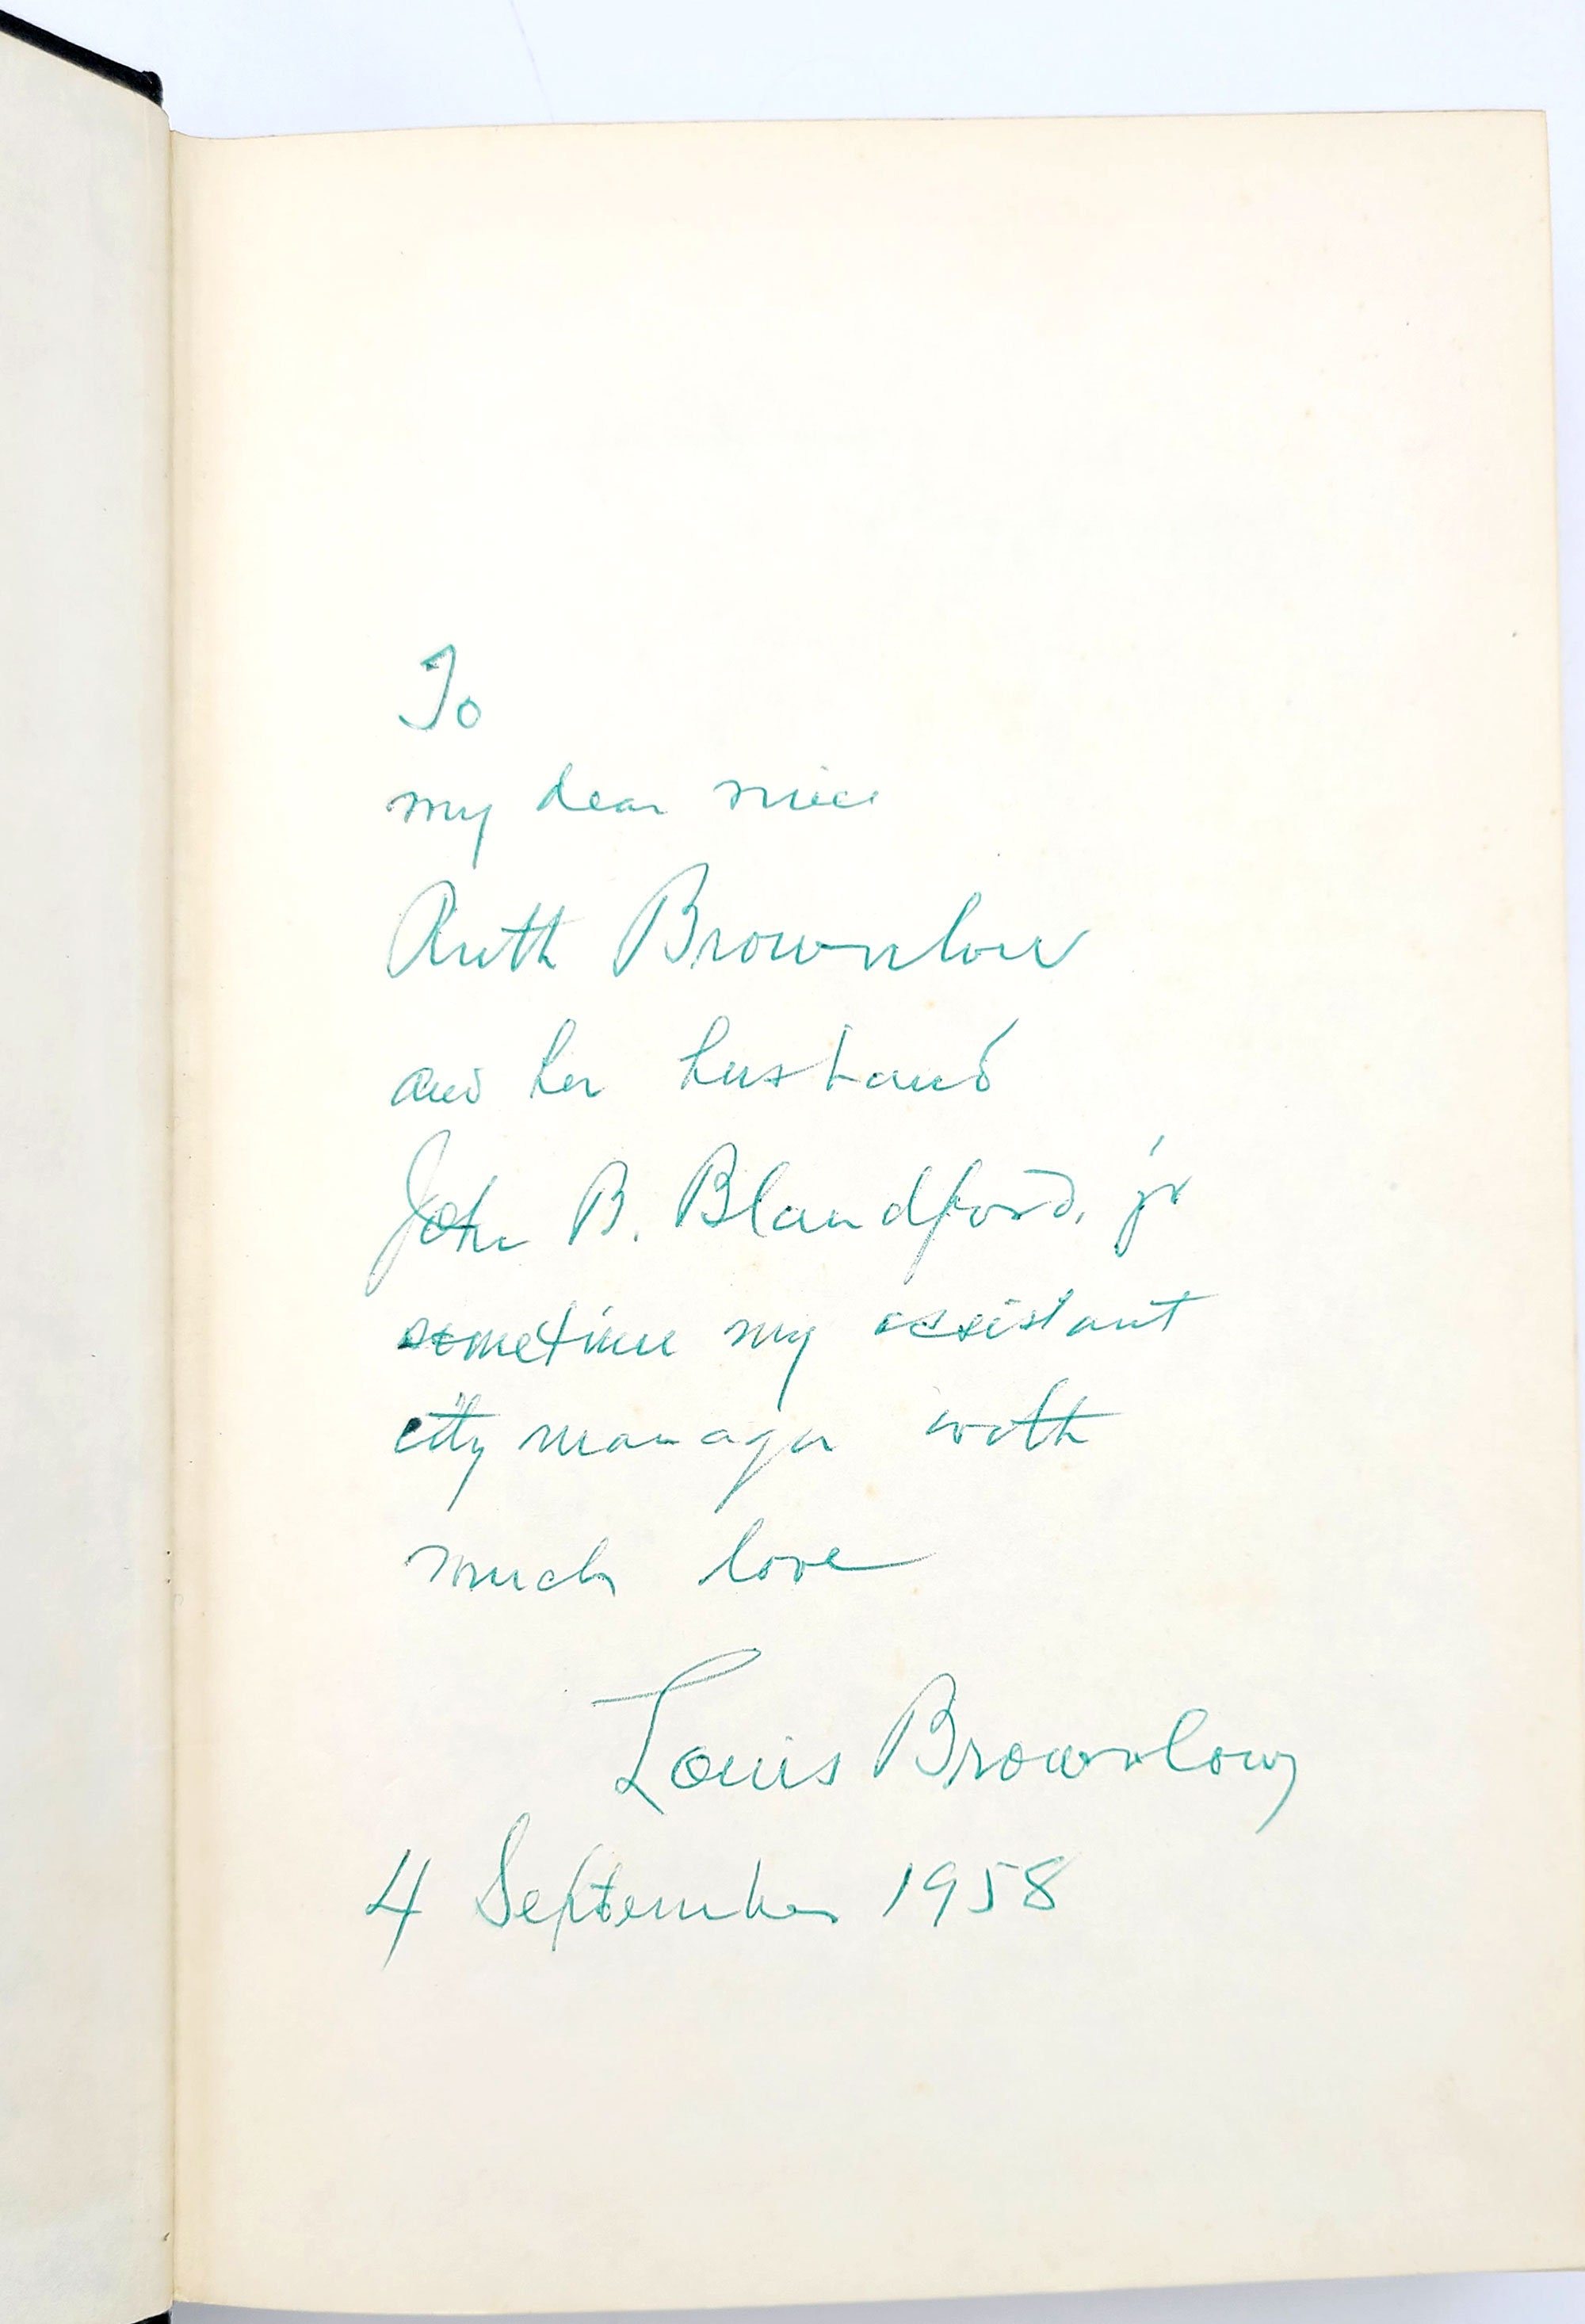 To
my dear niece
Ruth Brownlow
and her husband
John B. Blandford, jr
sometime my assistant
city manager with
much love
Louis Brownlow
4 September 1958